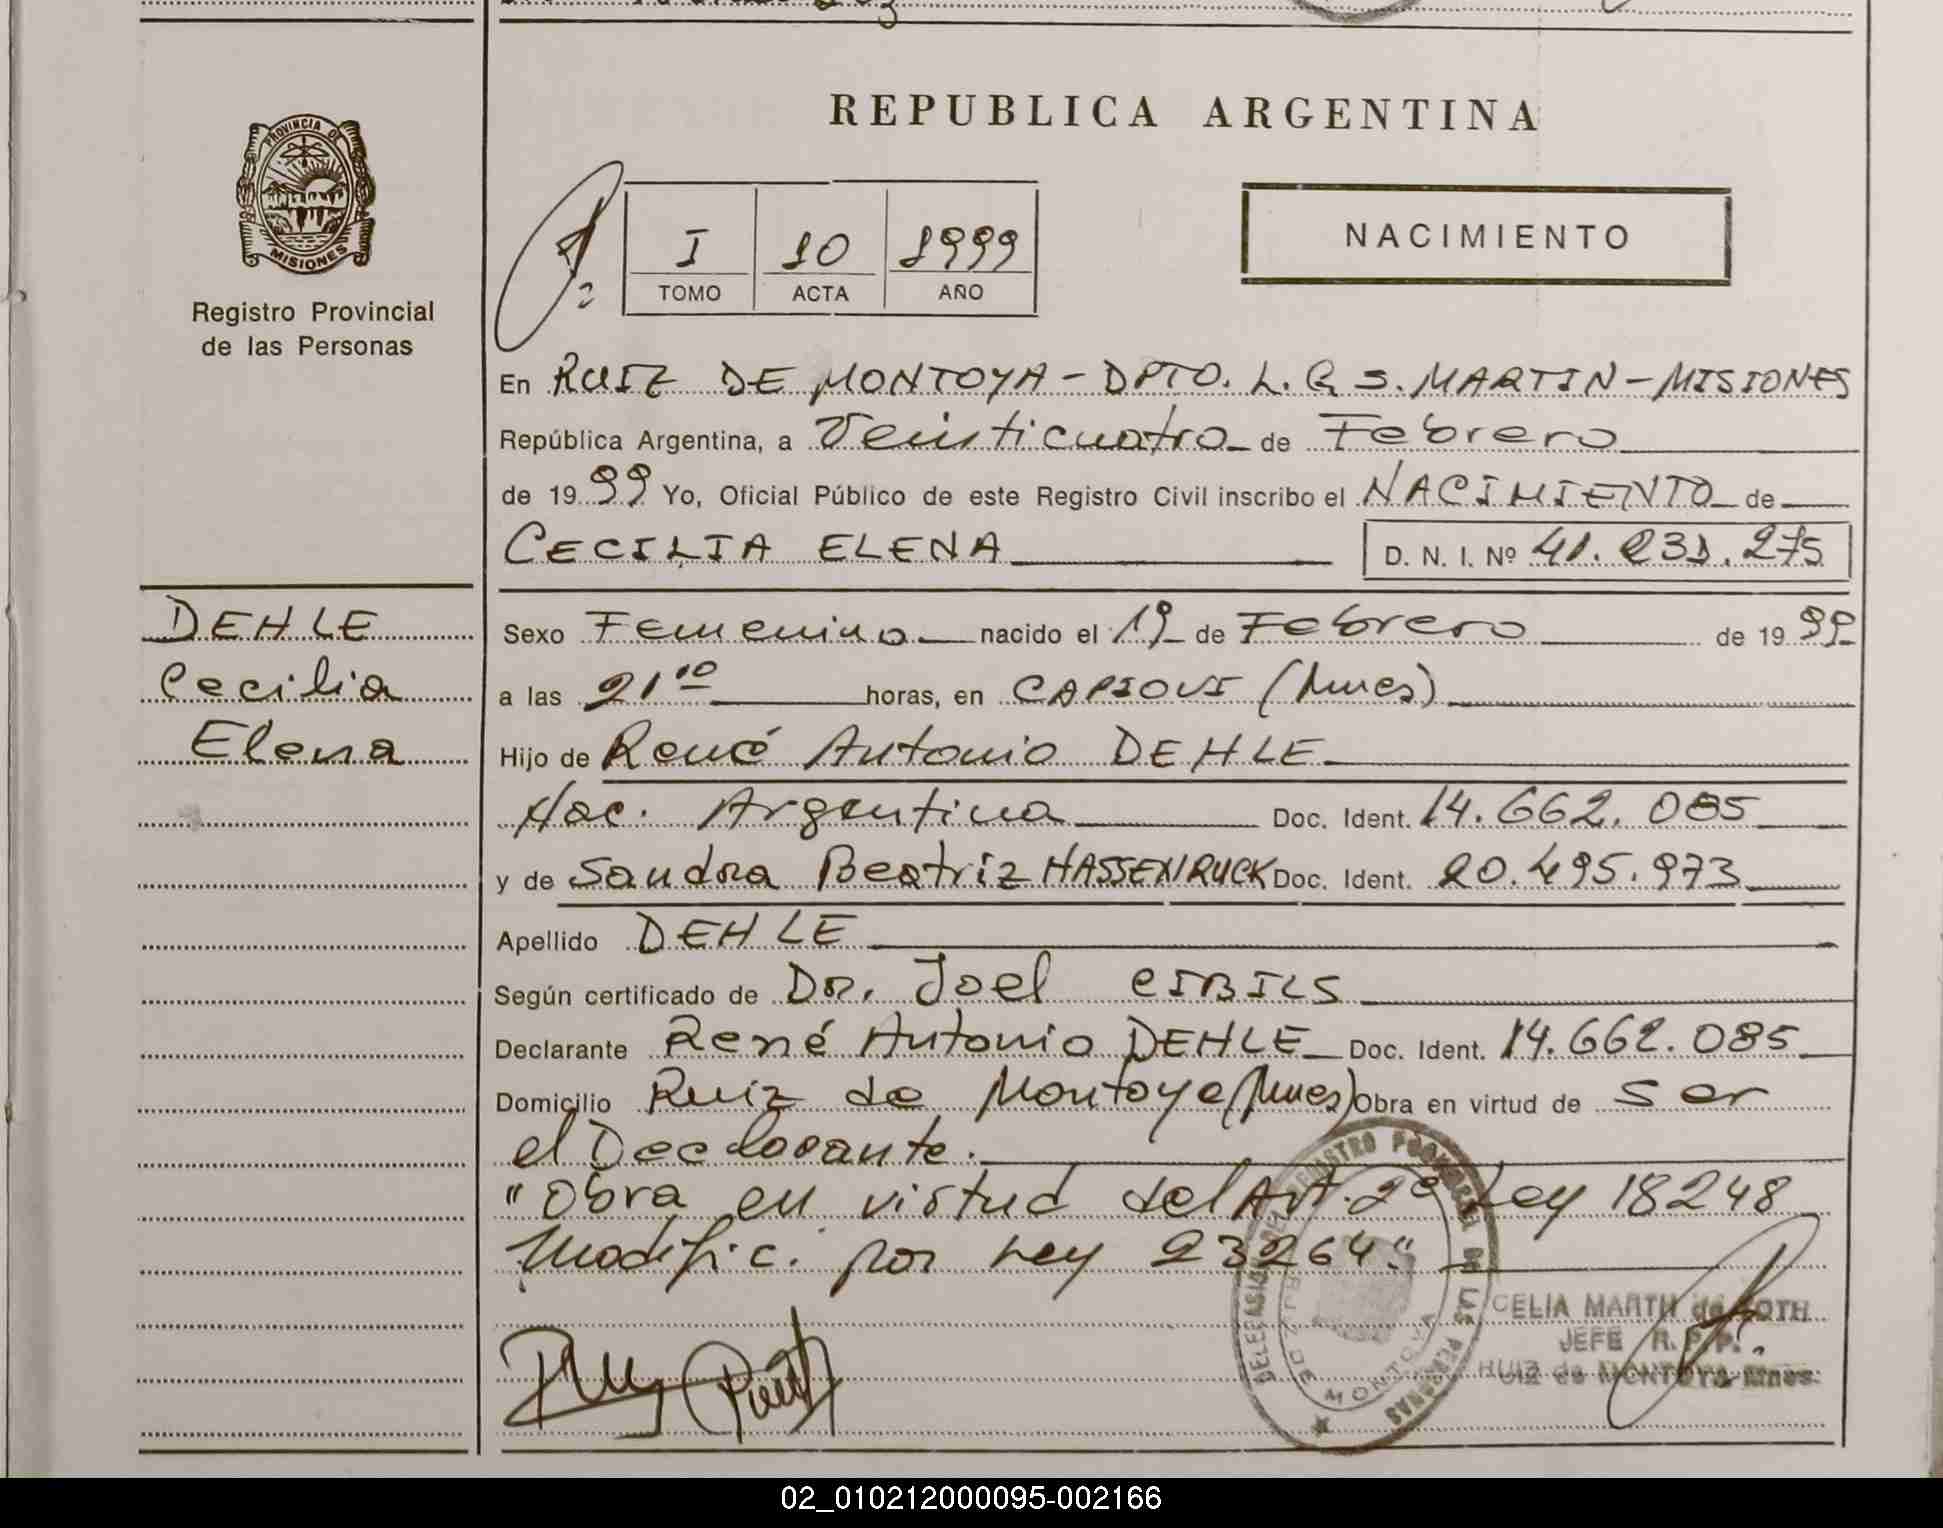 REPUBLICA ARGENTINA
PROVINCIA DE
MISIONES
Registro Provincial
de las Personas
I 10 1999
TOMO ACTA AÑO
NACIMIENTO
En RUIZ DE MONTOYA - DPTO. L. G. S. MARTIN - MISIONES
República Argentina, a Veinticuatro de Febrero
de 1999 Yo, Oficial Público de este Registro Civil inscribo el NACIMIENTO de
CECILIA ELENA D. N. I. Nº 41.231.275
DEHLE
Cecilia
Elena
Sexo Femenino nacido el 19 de Febrero de 1999
a las 21 10 horas, en CAPIOVI (Mnes)
Hijo de René Antonio DEHLE
Nac. Argentina Doc. Ident. 14.662.085
y de Sandra Beatriz HASSENRUCK Doc. Ident. 20.495.973
Apellido DEHLE
Según certificado de Dr. Joel CIBILS
Declarante René Antonio DEHLE Doc. Ident. 14.662.085
Domicilio Ruiz de Montoya (Mnes) Obra en virtud de ser
el Declarante.
"Obra en virtud del Art. 2º Ley 18248
Modific. por Ley 23264"
DELEGASION DEL REGISTRO PROVINCIAL DE LAS PERSONAS
RUIZ DE MONTOYA
CELIA MARTH de ROTH
JEFE R. P. P.
RUIZ de MONTOYA Mnes.
02_010212000095-002166